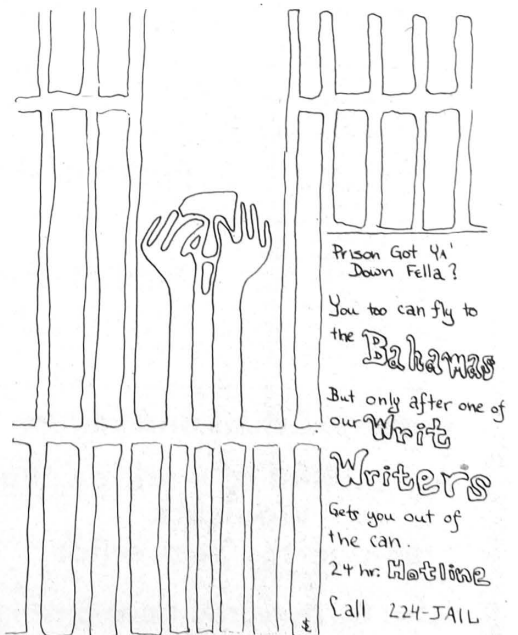 Prison Got Ya'
Down Fella?
You too can fly to
the Bahamas
But only after one of
our Writ
Writers
Gets you out of
the can.
24 hr. Hotline
Call 224-JAIL